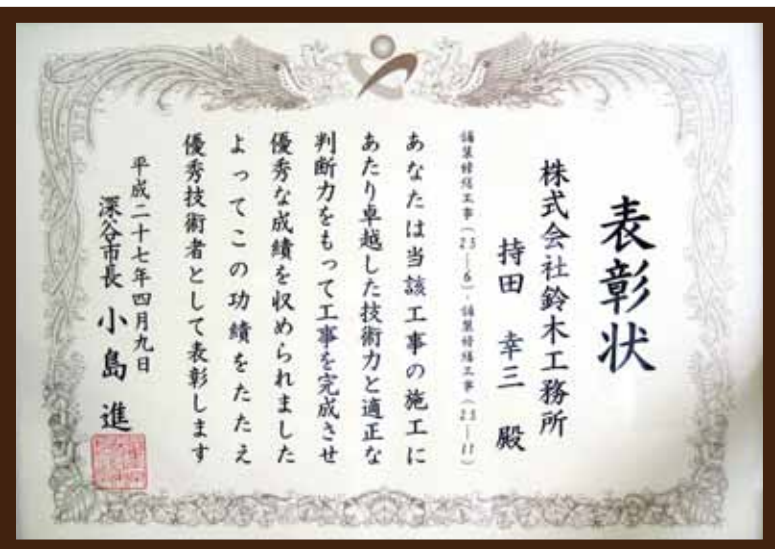 表彰状
株式会社鈴木工務所
持田 幸三 殿
舗装修繕工事（23―6）・舗装修繕工事（23―11）
あなたは当該工事の施工に
あたり卓越した技術力と適正な
判断力をもって工事を完成させ
優秀な成績を収められました
よってこの功績をたたえ
優秀技術者として表彰します
平成二十七年四月九日
深谷市長 小島 進